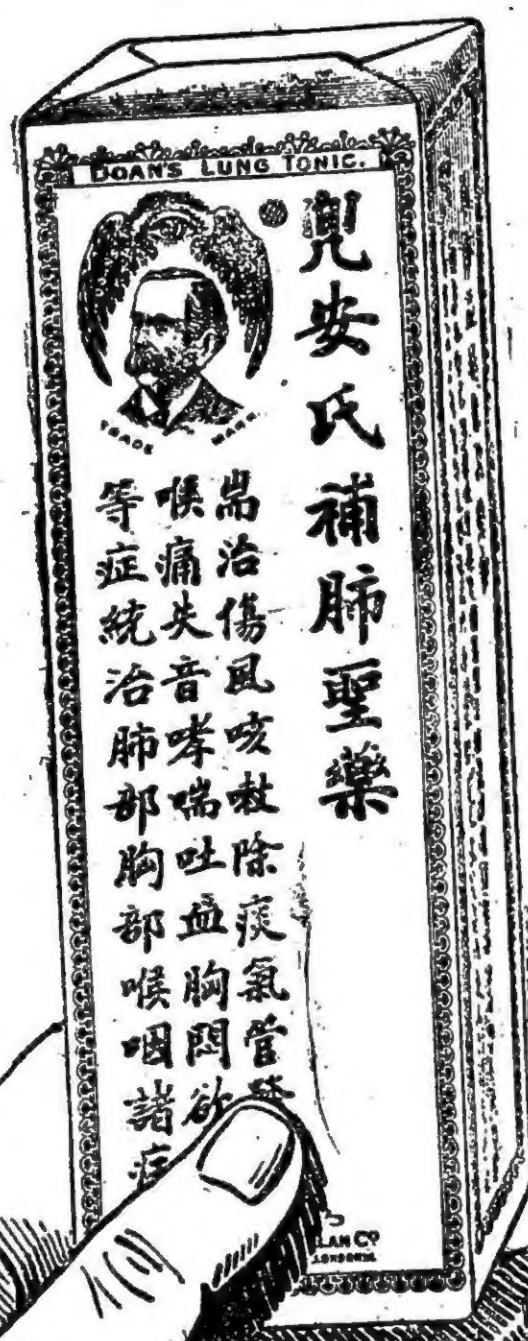 DOAN'S LUNG TONIC.
TRADE MARK.
兜安氏補肺聖藥
耑治傷風咳嗽除痰氣管發
喉痛失音哮喘吐血胸悶欲
等症統治肺部胸部喉咽諸症
LAN CO
LONDON